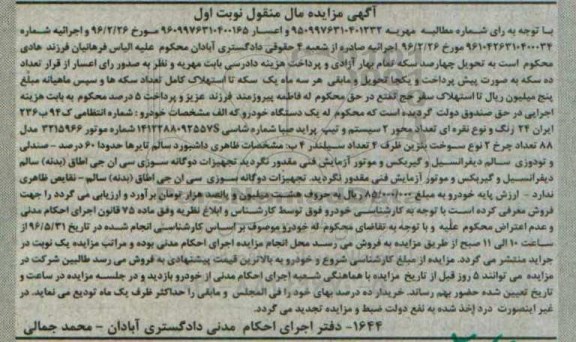 آگهی مزایده مال منقول نوبت اول
با توجه به رای شماره مطالبه مهریه ۹۵۰۹۹۷۶۳۱۰۴۰۱۲۳۲ و اعسار ۹۶۰۹۹۷۶۳۱۰۴۰۰۱۶۵ مورخ ۹۶/۲/۲۶ و اجرائیه شماره
۹۶۱۰۴۲۶۳۱۰۴۰۰۰۳۴ مورخ ۹۶/۲/۲۶ اجرائیه صادره از شعبه ۴ حقوقی دادگستری آبادان محکوم علیه الیاس فرهانیان فرزند هادی
محکوم است به تحویل چهارصد سکه تمام بهار آزادی و پرداخت هزینه دادرسی بابت مهریه و نظر به صدور رای اعسار از قرار تعداد
ده سکه به صورت پیش پرداخت و یکجا تحویل و مابقی هر سه ماه یک سکه تا استهلاک کامل تعداد سکه ها و سپس ماهیانه مبلغ
پنج میلیون ریال تا استهلاک سفر حج تمتع در حق محکوم له فاطمه پیروزمند فرزند عزیز و پرداخت ۵ درصد محکوم به بابت هزینه
اجرایی در حق صندوق دولت گردیده است که محکوم له یک دستگاه خودرو که الف مشخصات خودرو : شماره انتظامی ک ۹۴ ب ۲۳۶
ایران ۲۴ رنگ و نوع نقره ای تعداد محور ۲ سیستم و تیپ پراید صبا شماره شاسی S۱۴۱۲۲۸۸۰۹۲۵۵۷ شماره موتور ۳۳۱۵۹۶۶ مدل
۸۸ تعداد چرخ ۴ نوع سوخت بنزین ظرف ۴ تعداد سیلندر ۴ ب: مشخصات ظاهری داشبورد سالم تایرها حدودا ۶۰ درصد - صندلی
و تودوزی سالم دیفرانسیل و گیربکس و موتور آزمایش فنی مقدور نگردید تجهیزات دوگانه سوزی سی ان جی اطاق (بدنه) سالم
دیفرانسیل و گیربکس و موتور آزمایش فنی مقدور نگردید. تجهیزات دوگانه سوزی سی ان جی اطاق (بدنه) سالم - نقایص ظاهری
ندارد - ارزش پایه خودرو به مبلغ ۸۵/۰۰۰/۰۰۰ ریال به حروف هشت میلیون و پانصد هزار تومان برآورد و ارزیابی می گردد را جهت
فروش معرفی کرده است با توجه به کارشناسی خودرو فوق توسط کارشناس و ابلاغ نظریه وفق ماده ۷۵ قانون اجرای احکام مدنی
و عدم اعتراض محکوم علیه و با توجه به تقاضای محکوم له خودرو موصوف بر اساس کارشناسی انجام شده در تاریخ ۹۶/۵/۳۱ از
ساعت ۱۰ الی ۱۱ صبح از طریق مزایده به فروش می رسد محل انجام مزایده اجرای احکام مدنی بوده و مراتب مزایده یک نوبت در
جراید منتشر می گردد. مزایده از مبلغ کارشناسی شروع و خودرو به بالاترین قیمت پیشنهادی به فروش می رسد طالبین شرکت در
مزایده می توانند ۵ روز قبل از تاریخ مزایده با هماهنگی شعبه اجرای احکام مدنی از خودرو بازدید و در جلسه مزایده در ساعت و
تاریخ تعیین شده حضور بهم رساند. خریدار ده درصد بهای خود را فی المجلس و مابقی را حداکثر ظرف یک ماه تودیع می نماید. در
غیر اینصورت درد اخذ شده به نفع دولت ضبط و مزایده تجدید می گردد.
۱۶۴۴- دفتر اجرای احکام مدنی دادگستری آبادان - محمد جمالی